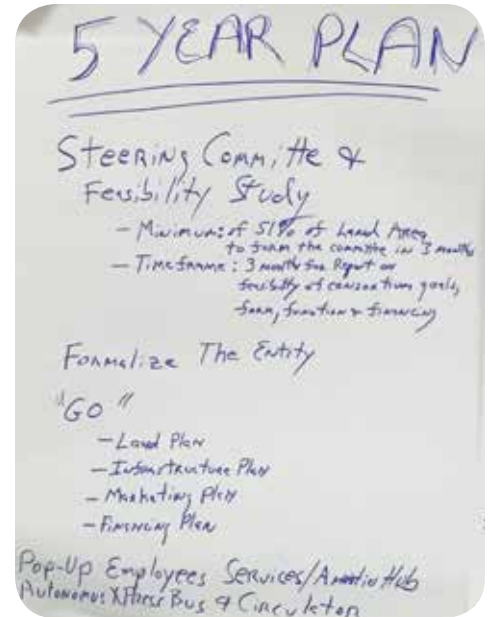 5 YEAR PLAN
Steering Committe &
Feasibility Study
- Minimum: of 51% of Land Area
to form the committe in 3 months
- Timeframe: 3 months for Report on
feasibilty of consortium goals,
form, function & financing
Formalize The Entity
"GO"
- Land Plan
- Infrastructure Plan
- Marketing Plan
- Financing Plan
Pop-Up Employees Services/ Hub
Autonomus XPress Bus & Circulator